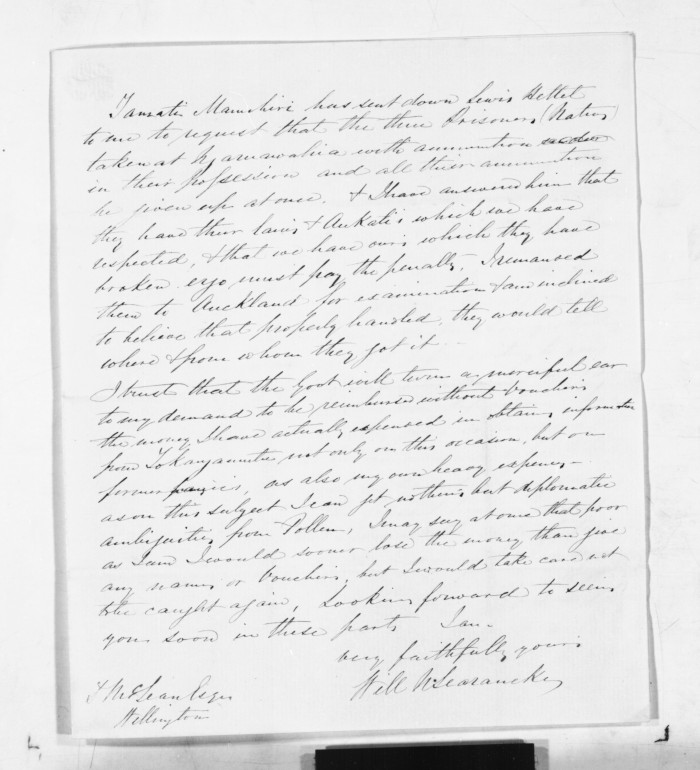 Tauati Manuhiri has sent down Lewis Hettet
to me to request that the three Prisoners (Natives)
taken at Ngaruawahia with ammunition
in their possession and all their ammunition
be given up at once. & I have answered him that
they have their laws & Aukati's which we have
respected, & that we have ours which they have
broken ergo must pay the penalty, I remanded
them to Auckland for examination & am inclined
to believe that properly handled, they would tell
where & from whom they got it
I trust that the Govt will turn a merciful ear
to my demand to be reimbursed without Vouchers
the money I have actually expensed in information
from Tokangamutu not only on this occasion, but on
former as also my own heavy expenses
as on this subject I can get nothing but diplomatic
ambiguities from Pollen, I may say at once that poor
as I am I would sooner lose the money than give
any names or Vouchers, but I would take care not
to be caught again, Looking forward to seeing
you soon in these parts I am
very faithfully yours
Will N Searancke
McLean Esqre
Wellington